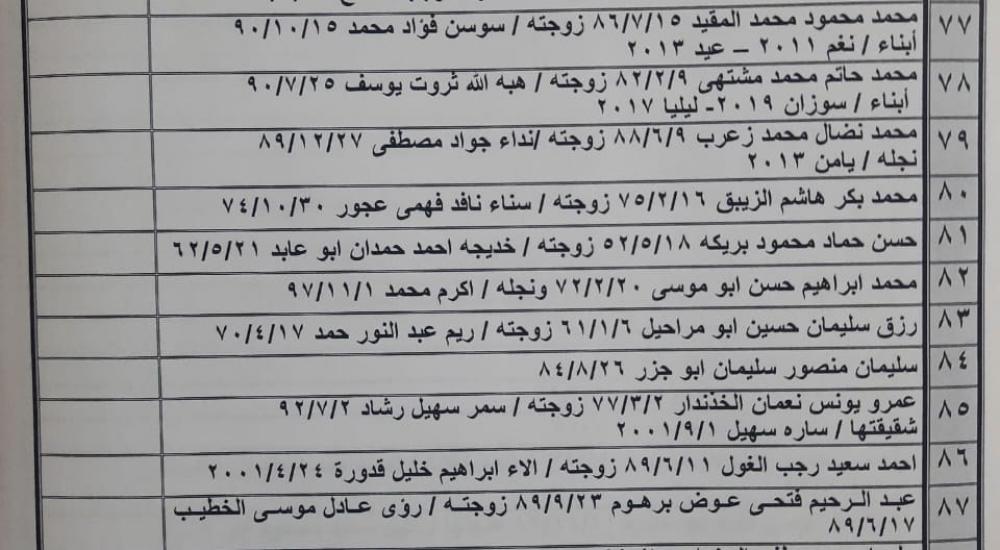 ٧٧ محمد محمود محمد المقيد ٨٦/٧/١٥ زوجته / سوسن فؤاد محمد ٩٠/١٠/١٥
أبناء / نغم ٢٠١١ – عيد ٢٠١٣
٧٨ محمد حاتم محمد مشتهى ٨٢/٢/٩ زوجته / هبه الله ثروت يوسف ٩٠/٧/٢٥
أبناء / سوزان ٢٠١٩- ليليا ٢٠١٧
٧٩ محمد نضال محمد زعرب ٨٨/٦/٩ زوجته /نداء جواد مصطفى ٨٩/١٢/٢٧
نجله / يامن ٢٠١٣
٨٠ محمد بكر هاشم الزيبق ٧٥/٢/١٦ زوجته / سناء نافد فهمى عجور ٧٤/١٠/٣٠
٨١ حسن حماد محمود بريكه ٥٢/٥/١٨ زوجته / خديجه احمد حمدان ابو عابد ٦٢/٥/٢١
٨٢ محمد ابراهيم حسن ابو موسى ٧٢/٢/٢٠ ونجله / اكرم محمد ٩٧/١١/١
٨٣ رزق سليمان حسين ابو مراحيل ٦١/١/٦ زوجته / ريم عبد النور حمد ٧٠/٤/١٧
٨٤ سليمان منصور سليمان ابو جزر ٨٤/٨/٢٦
٨٥ عمرو يونس نعمان الخذندار ٧٧/٣/٢ زوجته / سمر سهيل رشاد ٩٢/٧/٢
شقيقتها / ساره سهيل ٢٠٠١/٩/١
٨٦ احمد سعيد رجب الغول ٨٩/٦/١١ زوجته / الاء ابراهيم خليل قدورة ٢٠٠١/٤/٢٤
٨٧ عبد الرحيم فتحى عوض برهوم ٨٩/٩/٢٣ زوجته / رؤى عادل موسى الخطيب
٨٩/٦/١٧